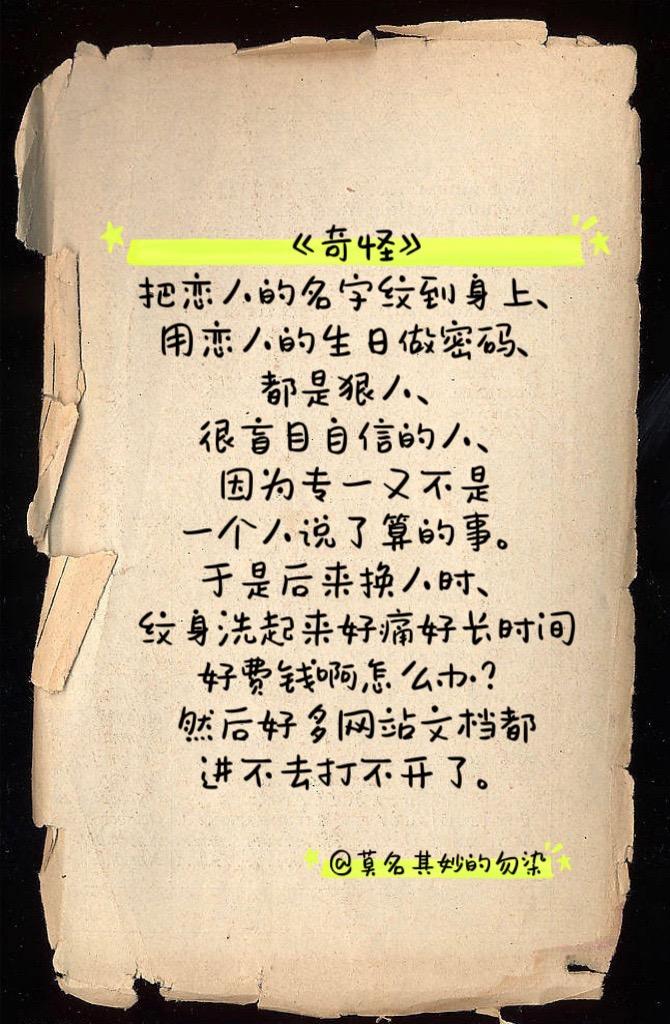 《奇怪》
把恋人的名字纹到身上、
用恋人的生日做密码、
都是狠人、
很盲目自信的人、
因为专一又不是
一个人说了算的事。
于是后来换人时、
纹身洗起来好痛好长时间
好费钱啊怎么办?
然后好多网站文档都
进不去打不开了。
@莫名其妙的勿染